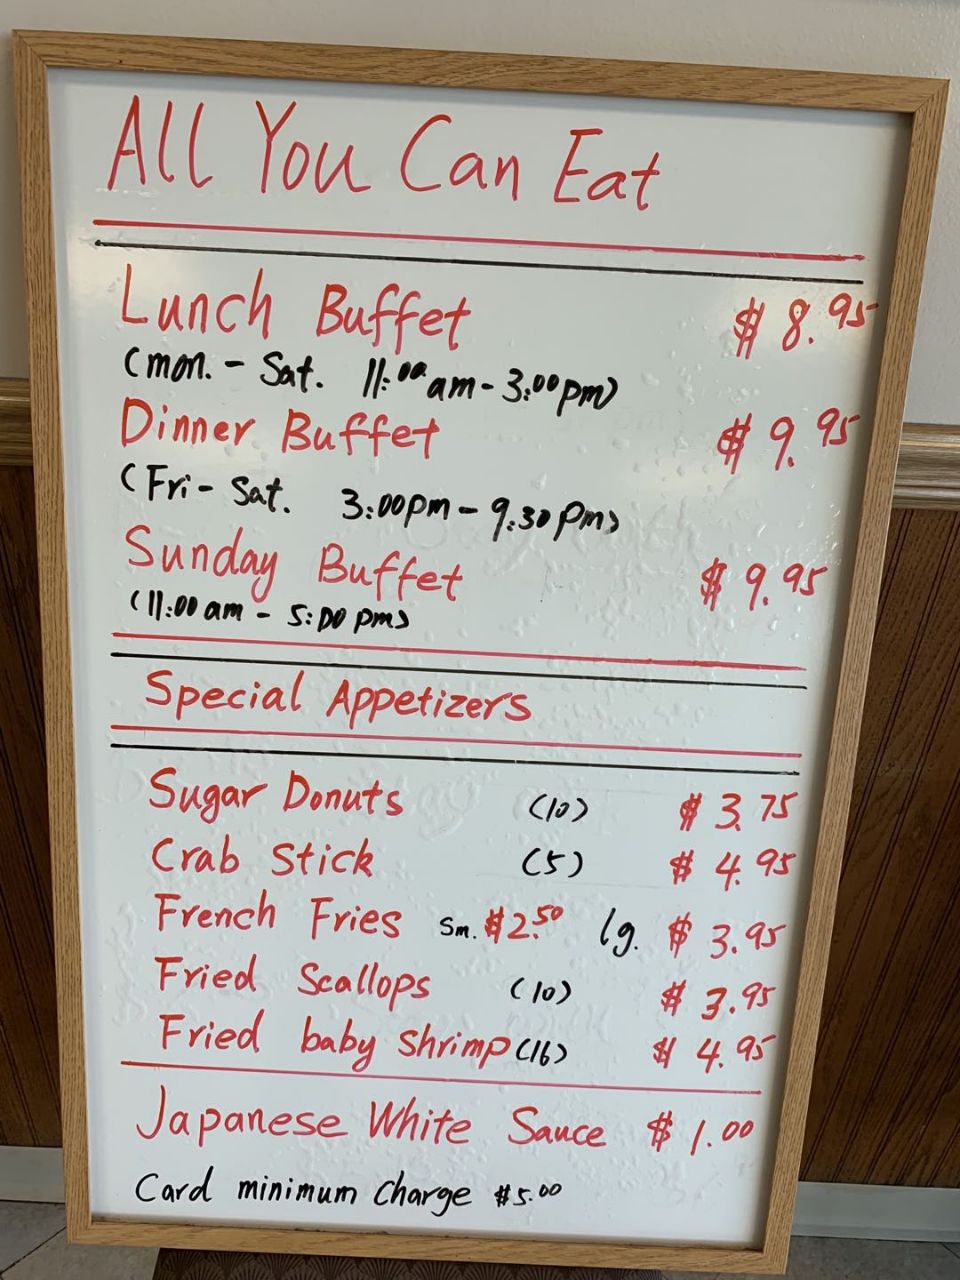 All You Can Eat
Lunch Buffet $8.95
(mon. - Sat. 11:00 am - 3:00 pm)
Dinner Buffet $9.95
(Fri - Sat. 3:00 pm - 9:30 pm)
Sunday Buffet $9.95
(11:00 am - 5:00 pm)
Special Appetizers
Sugar Donuts (10) $3.75
Crab Stick (5) $4.95
French Fries Sm. $2.50 lg. $3.95
Fried Scallops (10) $3.95
Fried baby shrimp (16) $4.95
Japanese White Sauce $1.00
Card minimum charge $5.00